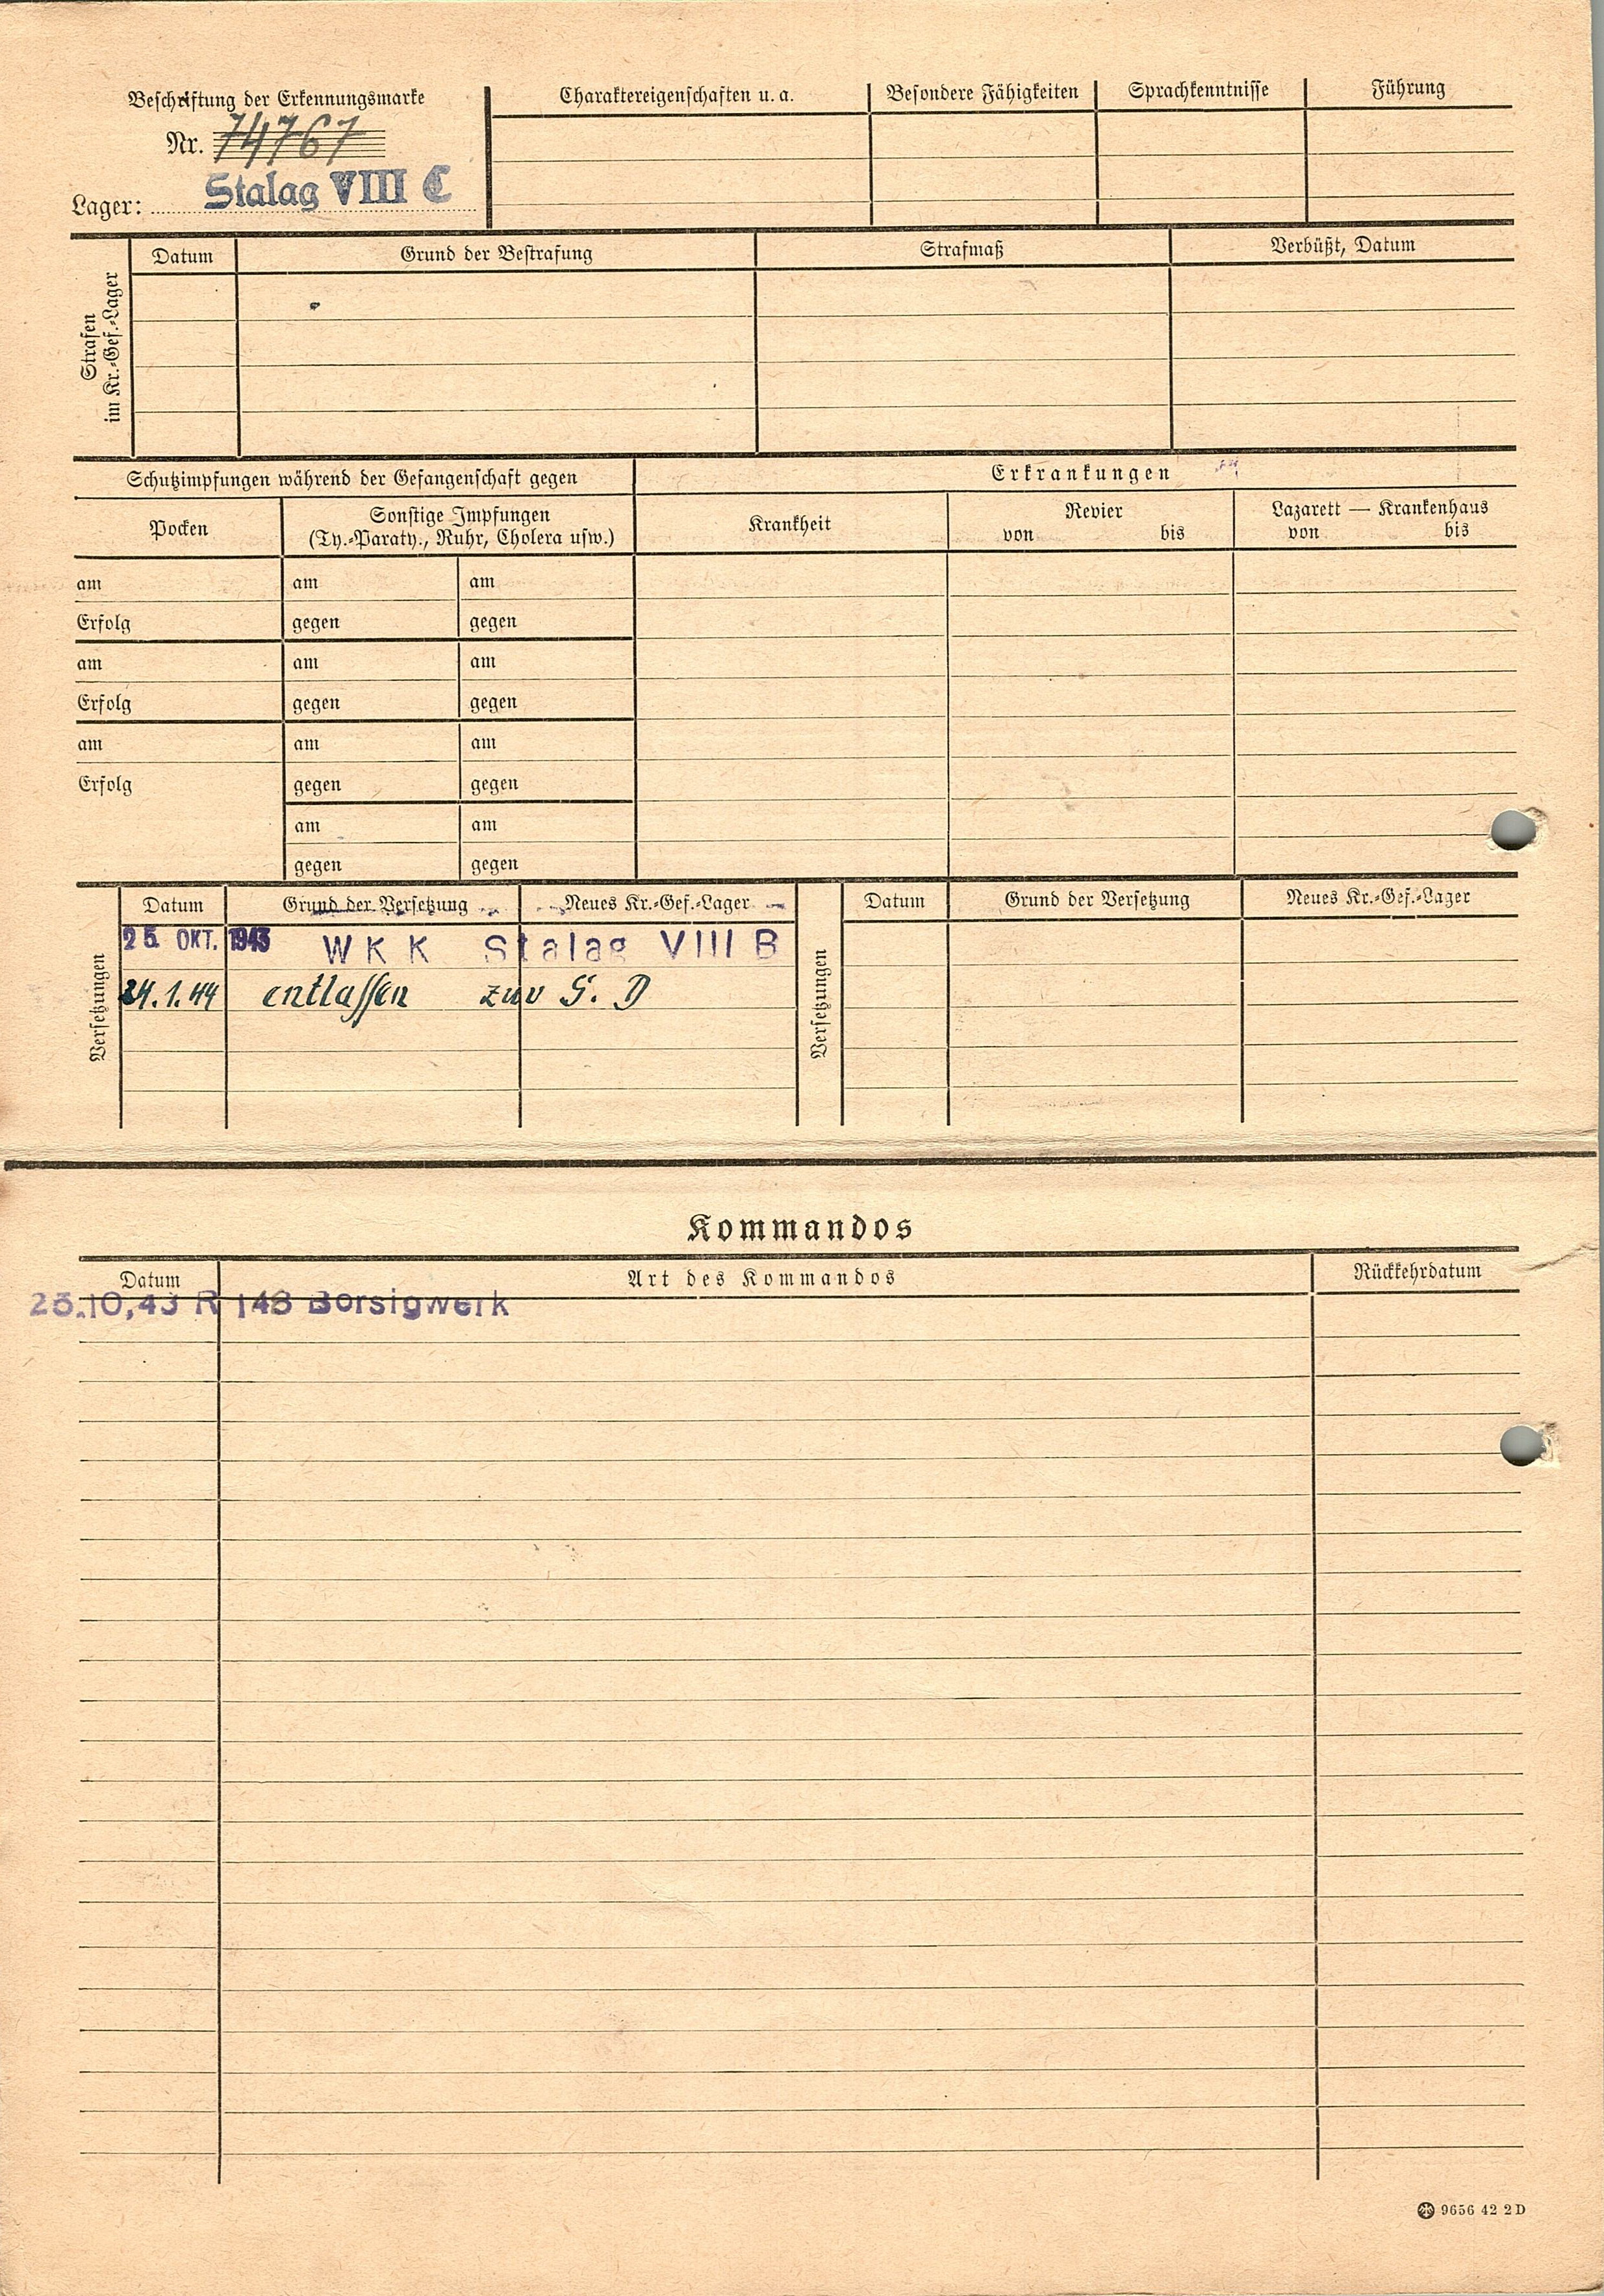 Beschriftung der Erkennungsmarke
Nr. 74767
Lager: Stalag VIII C
Charaktereigenschaften u. a. Besondere Fähigkeiten Sprachkenntnisse Führung
Strafen
im Kr.-Gef.-Lager
Datum Grund der Bestrafung Strafmaß Verbüßt, Datum
Schutzimpfungen während der Gefangenschaft gegen Erkrankungen
Pocken Sonstige Impfungen
(Ty.-Paraty., Ruhr, Cholera usw.)
Krankheit Revier Lazarett — Krankenhaus
von bis von bis
am am am
Erfolg gegen gegen
am am am
Erfolg gegen gegen
am am am
Erfolg gegen gegen
am am
gegen gegen
Versetzungen
Datum Grund der Versetzung Neues Kr.-Gef.-Lager
25. OKT. 1943 WKK Stalag VIII B
24.1.44 entlassen zur S. D
Versetzungen
Datum Grund der Versetzung Neues Kr.-Gef.-Lager
Kommandos
Datum Art des Kommandos Rückkehrdatum
R 148 Borsigwerk
9656 42 2 D